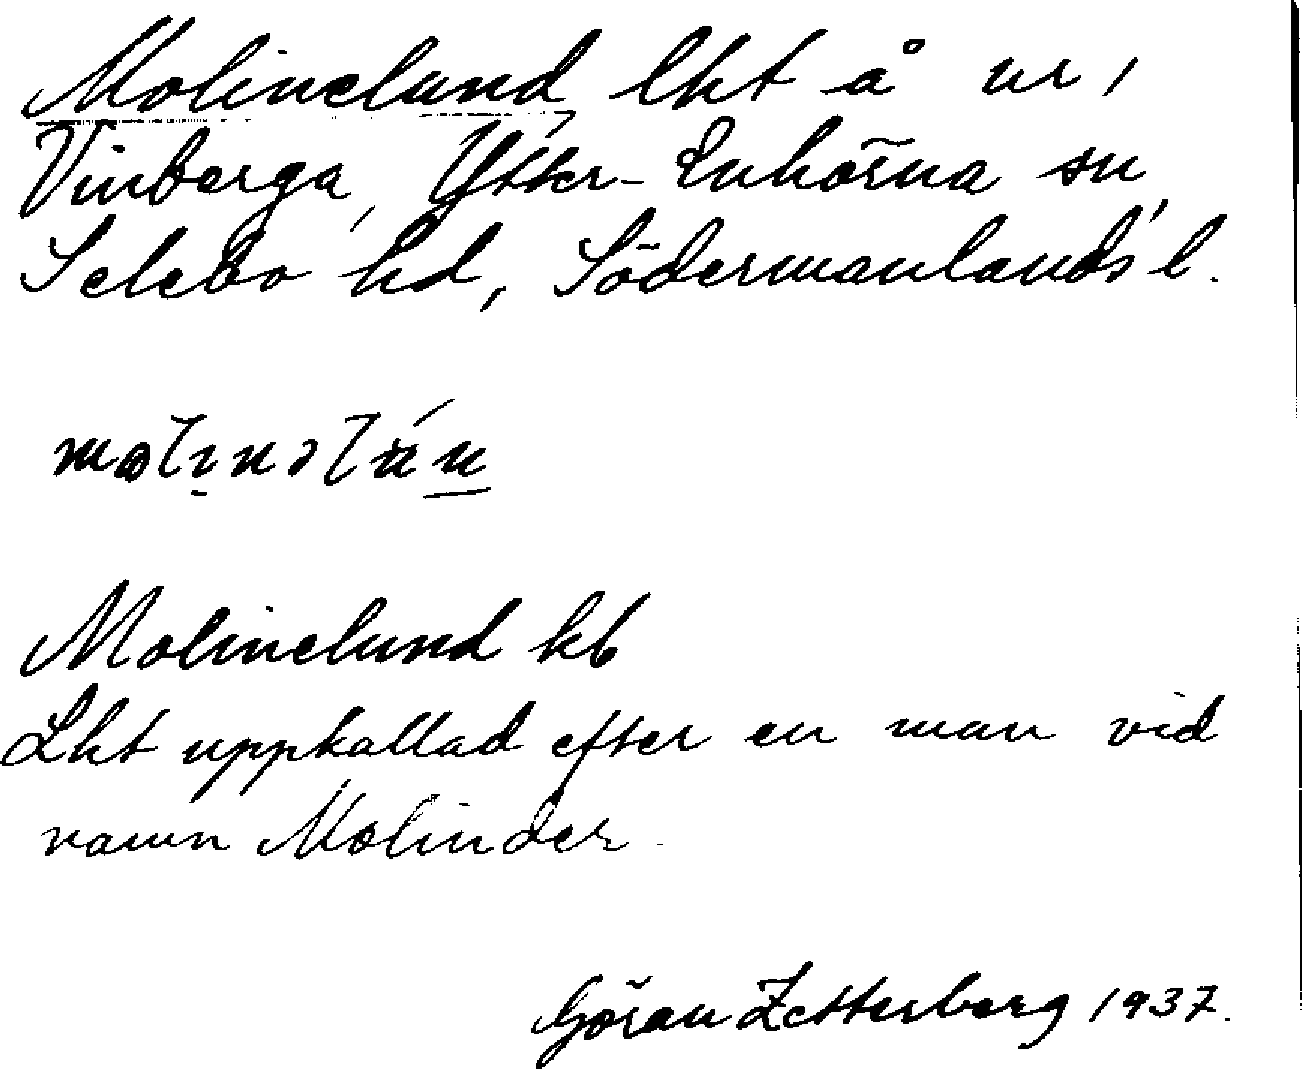 Molinelund, lht å nr 1
Vinberga, Ytter-Enhörna sn
Selebo hd, Södermanlands l.
molinəlún
Molinelund kb
Lht uppkallad efter en man vid
namn Molinder.
Göran Zetterberg 1937.